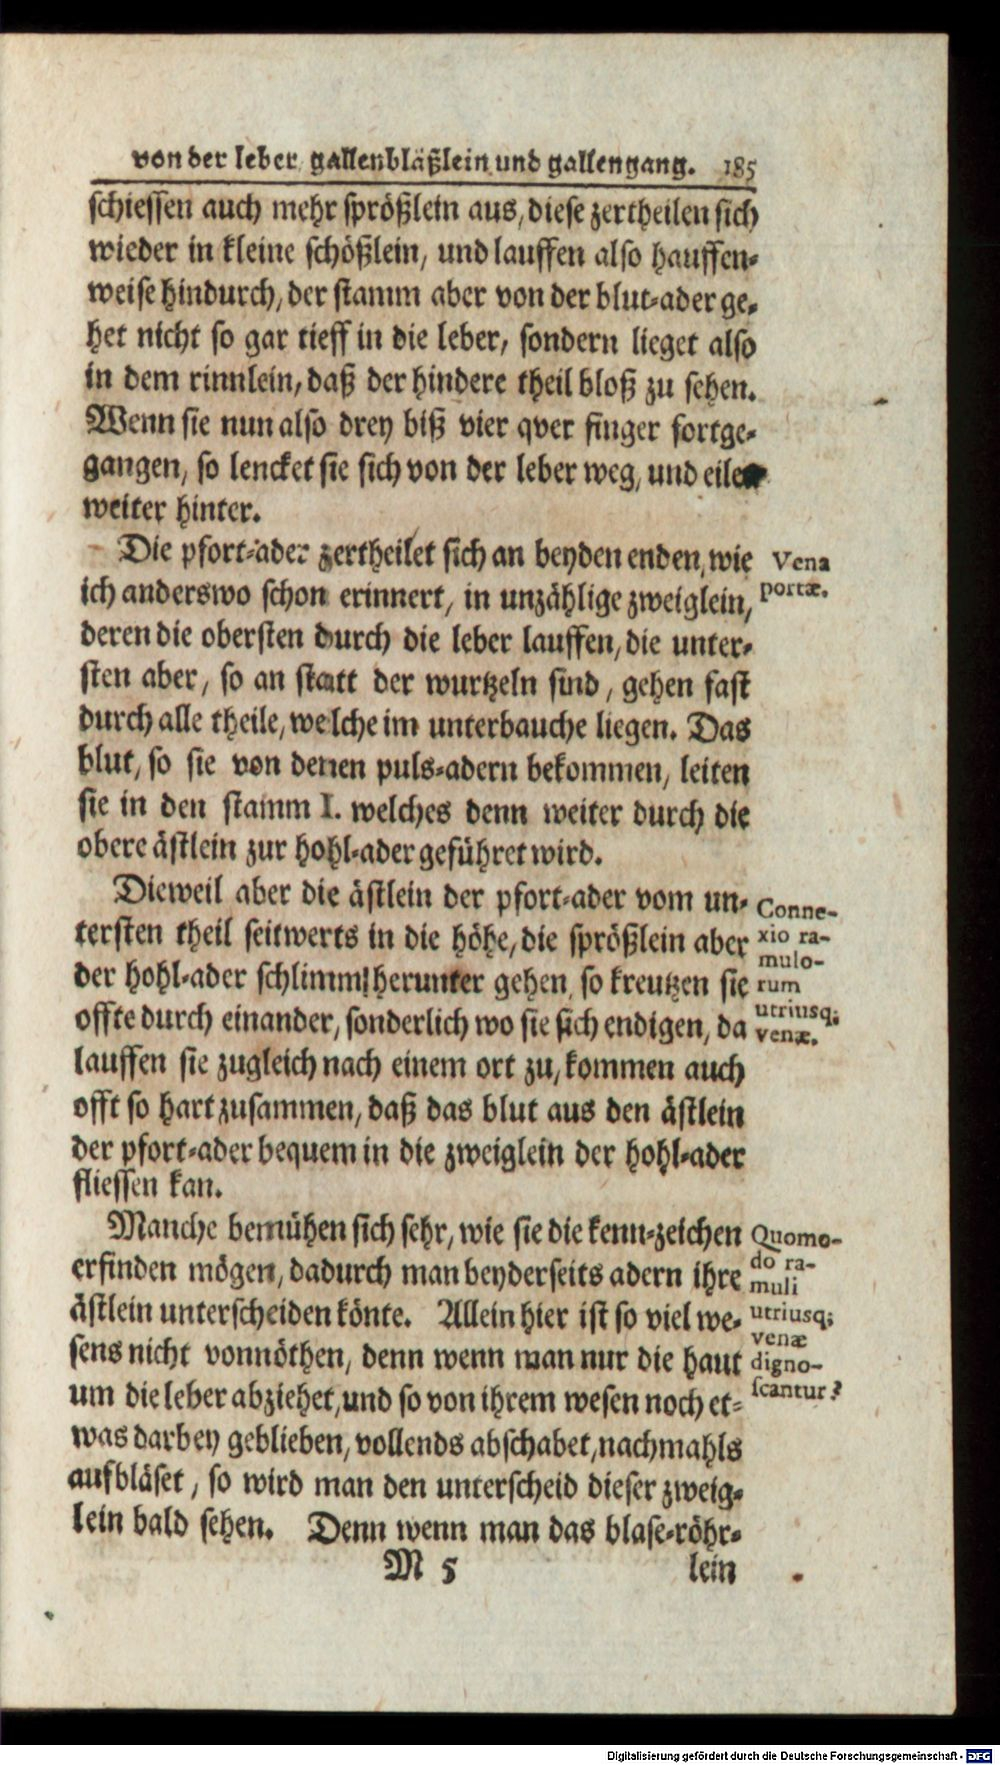 von der leber, gallenbläßlein und gallengang. 185
schiessen auch mehr sprößlein aus, diese zertheilen sich
wieder in kleine schößlein, und lauffen also hauffen-
weise hindurch, der stamm aber von der blut-ader ge-
het nicht so gar tieff in die leber, sondern lieget also
in dem rinnlein, daß der hindere theil bloß zu sehen.
Wenn sie nun also drey biß vier qver finger fortge-
gangen, so lencket sie sich von der leber weg, und eilet
weiter hinter.
Die pfort-ader zertheilet sich an beyden enden, wie
Vena
ich anderswo schon erinnert, in unzählige zweiglein,
portæ.
deren die obersten durch die leber lauffen, die unter-
sten aber, so an statt der wurtzeln sind, gehen fast
durch alle theile, welche im unterbauche liegen. Das
blut, so sie von denen puls-adern bekommen, leiten
sie in den stamm I. welches denn weiter durch die
obere ästlein zur hohl-ader geführet wird.
Dieweil aber die ästlein der pfort-ader vom un-
Conne-
tersten theil seitwerts in die höhe, die sprößlein aber
xio ra-
mulo-
der hohl-ader schlimm herunter gehen, so kreutzen sie
rum
offte durch einander, sonderlich wo sie sich endigen, da
utriusq;
venæ.
lauffen sie zugleich nach einem ort zu, kommen auch
offt so hart zusammen, daß das blut aus den ästlein
der pfort-ader bequem in die zweiglein der hohl-ader
fliessen kan.
Manche bemühen sich sehr, wie sie die kenn-zeichen
Quomo-
erfinden mögen, dadurch man beyderseits adern ihre
do ra-
muli
ästlein unterscheiden könte. Allein hier ist so viel we-
utriusq;
venæ
sens nicht vonnöthen, denn wenn man nur die haut
digno-
um die leber abziehet, und so von ihrem wesen noch et-
scantur?
was darbey geblieben, vollends abschabet, nachmahls
aufbläset, so wird man den unterscheid dieser zweig-
lein bald sehen. Denn wenn man das blase-röhr-
M 5 lein
Digitalisierung gefördert durch die Deutsche Forschungsgemeinschaft - DFG